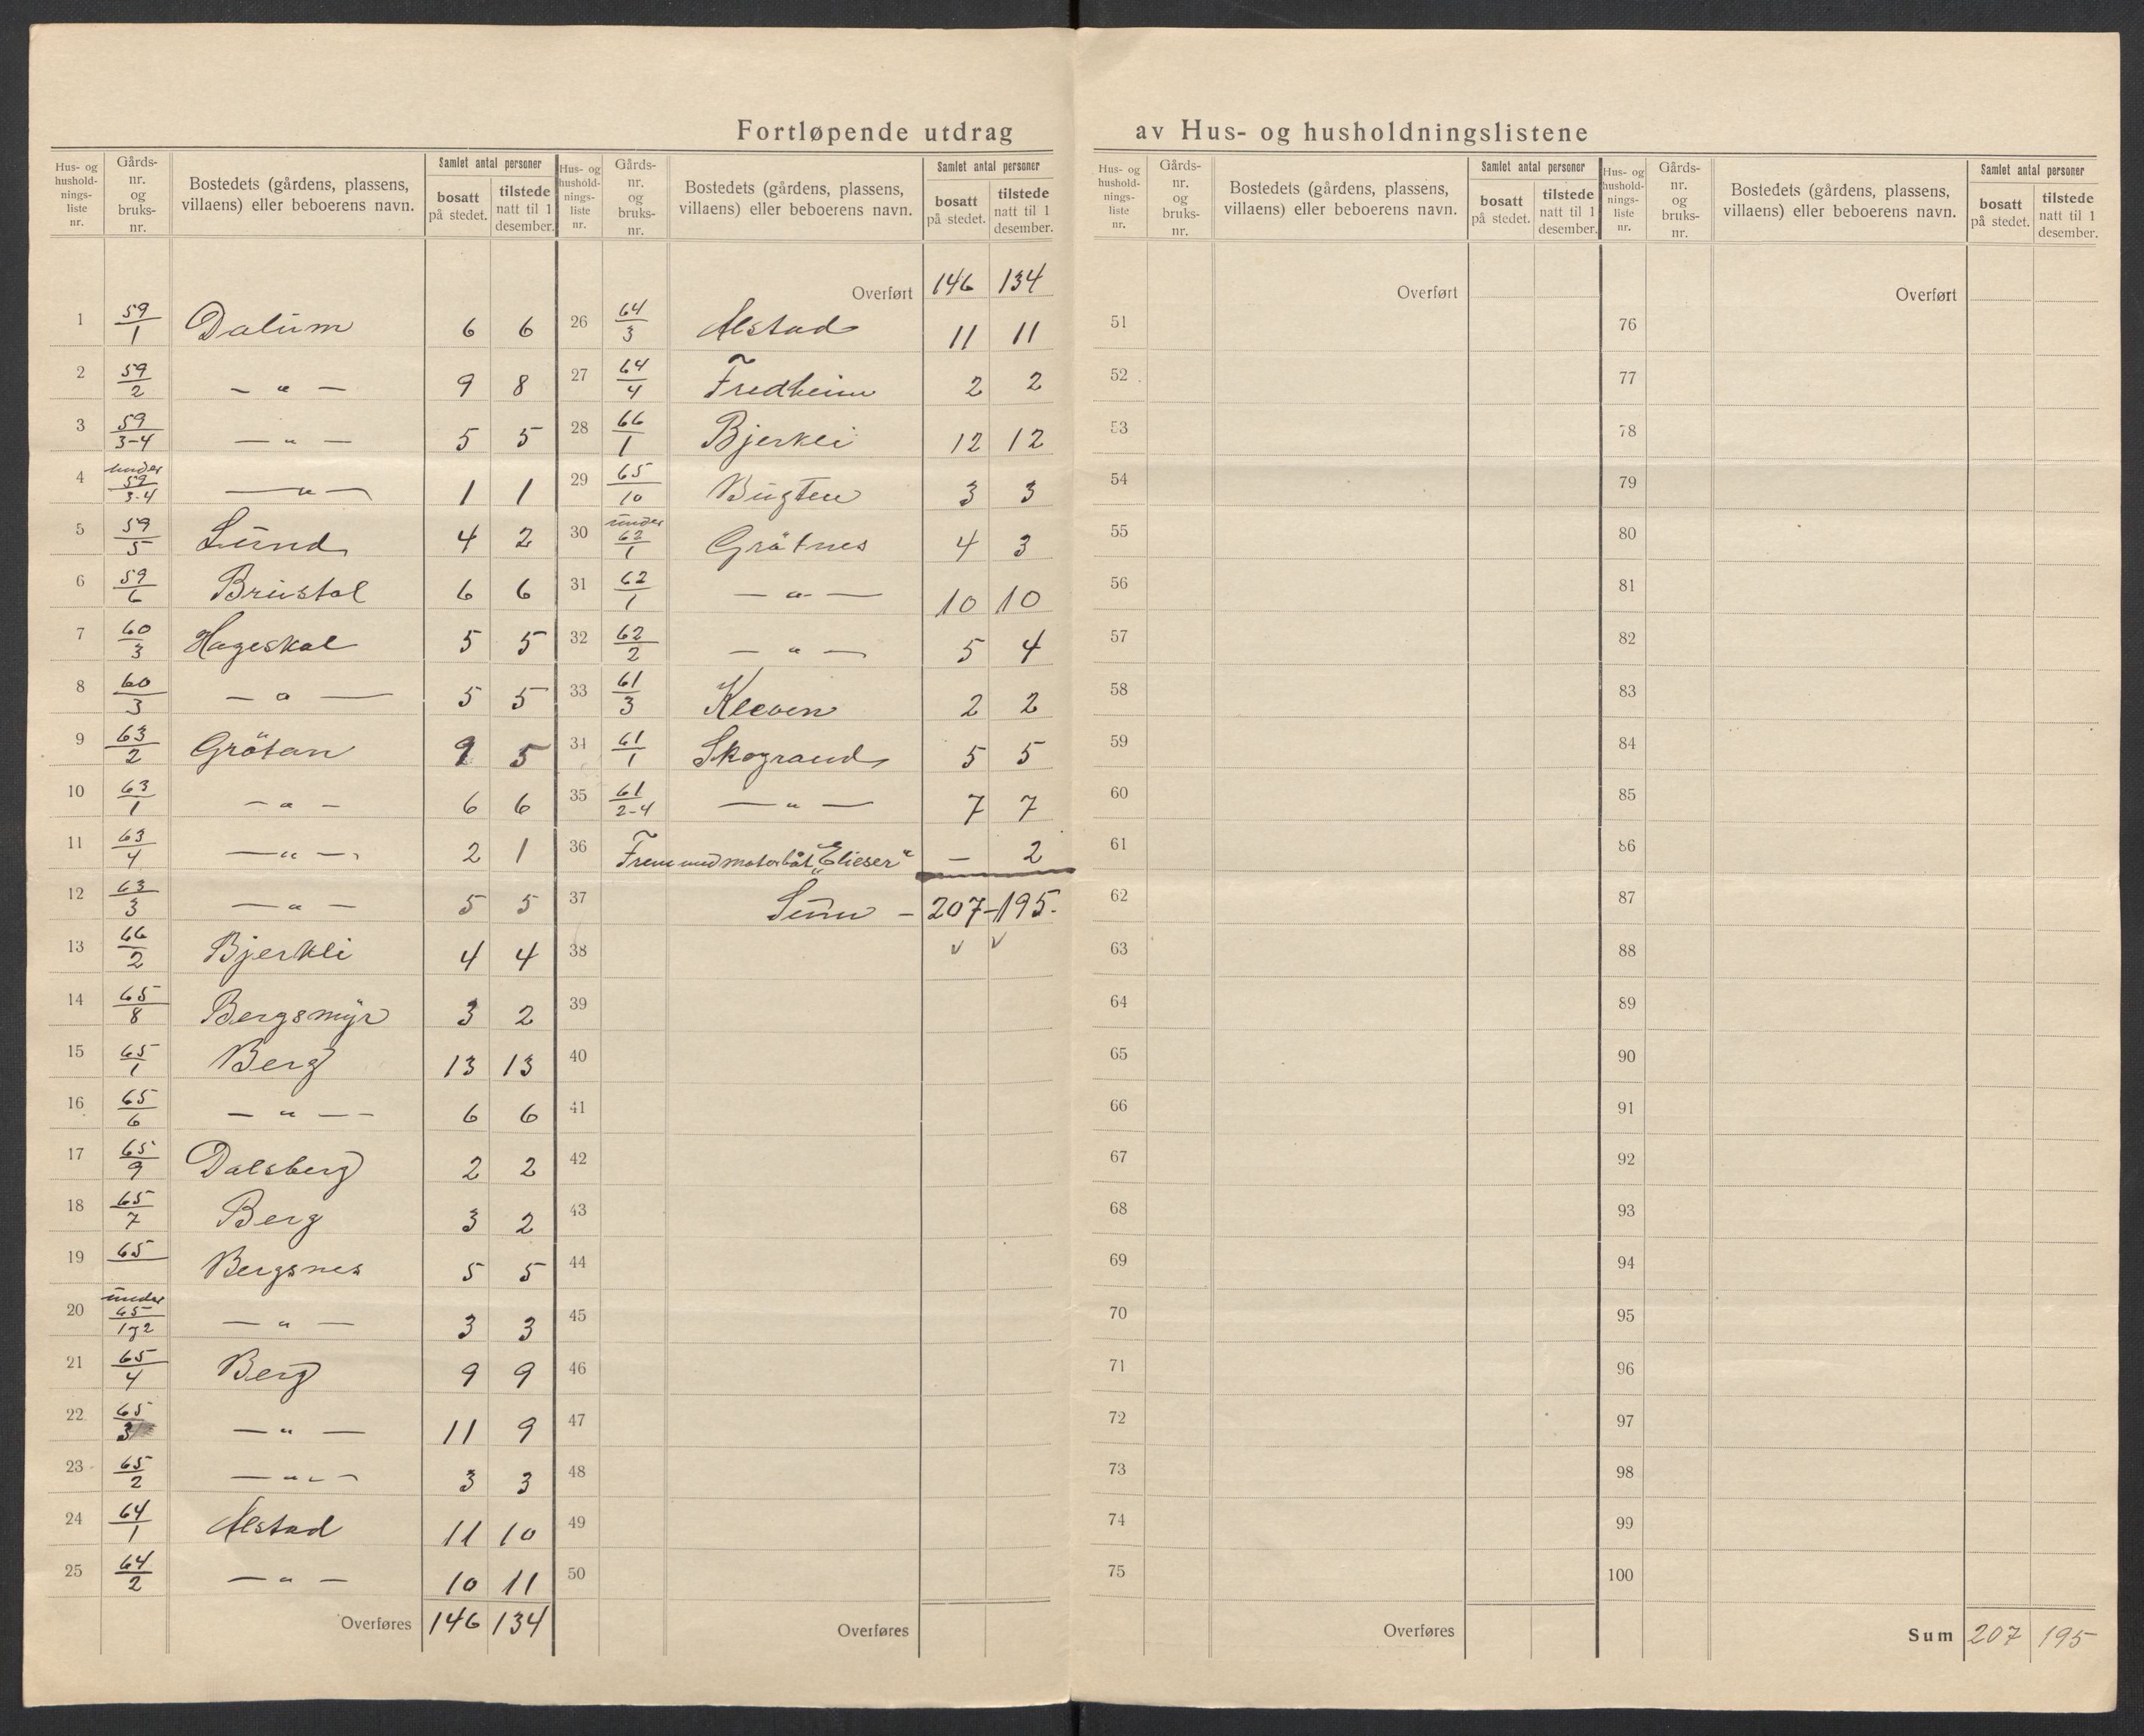 Fortløpende utdrag av Hus- og husholdningslistene
Hus- og hushold- nings- liste nr. Gårds- nr. og bruks- nr. Bostedets (gårdens, plassens, villaens) eller beboerens navn. Samlet antal personer bosatt på stedet. tilstede natt til 1 desember.
1 59/1 Dalum 6 6
2 59/2 — " — 9 8
3 59/3-4 — " — 5 5
4 under 59/3-4 — " — 1 1
5 59/5 Lund 4 2
6 59/6 Brustol 6 6
7 60/3 Hageskal 5 5
8 60/3 — " — 5 5
9 63/2 Grötan 9 5
10 63/1 — " — 6 6
11 63/4 — " — 2 1
12 63/3 — " — 5 5
13 66/2 Bjerkli 4 4
14 65/8 Bergsmyr 3 2
15 65/1 Berg 13 13
16 65/6 — " — 6 6
17 65/9 Dalsberg 2 2
18 65/7 Berg 3 2
19 65 Bergsnes 5 5
20 under 65/1 2 — " — 3 3
21 65/4 Berg 9 9
22 65/3 — " — 11 9
23 65/2 — " — 3 3
24 64/1 Alstad 11 10
25 64/2 — " — 10 11
Overføres 146 134
Hus- og hushold- nings- liste nr. Gårds- nr. og bruks- nr. Bostedets (gårdens, plassens, villaens) eller beboerens navn. Samlet antal personer bosatt på stedet. tilstede natt til 1 desember.
Overført 146 134
26 64/3 Alstad 11 11
27 64/4 Fredheim 2 2
28 66/1 Bjerkli 12 12
29 65/10 Bugten 3 3
30 under 62/1 Grötnes 4 3
31 62/1 — " — 10 10
32 62/2 — " — 5 4
33 61/3 Kleven 2 2
34 61/1 Skogrand 5 5
35 61/2-4 — " — 7 7
36 motorbåt „Elieser" — 2
37 Sum — 207 — 195.
38 v v
39
40
41
42
43
44
45
46
47
48
49
50
Overføres
Hus- og hushold- nings- liste nr. Gårds- nr. og bruks- nr. Bostedets (gårdens, plassens, villaens) eller beboerens navn. Samlet antal personer bosatt på stedet. tilstede natt til 1 desember.
Overført
51
52
53
54
55
56
57
58
59
60
61
62
63
64
65
66
67
68
69
70
71
72
73
74
75
Overføres
Hus- og hushold- nings- liste nr. Gårds- nr. og bruks- nr. Bostedets (gårdens, plassens, villaens) eller beboerens navn. Samlet antal personer bosatt på stedet. tilstede natt til 1 desember.
Overført
76
77
78
79
80
81
82
83
84
85
86
87
88
89
90
91
92
93
94
95
96
97
98
99
100
Sum 207 195